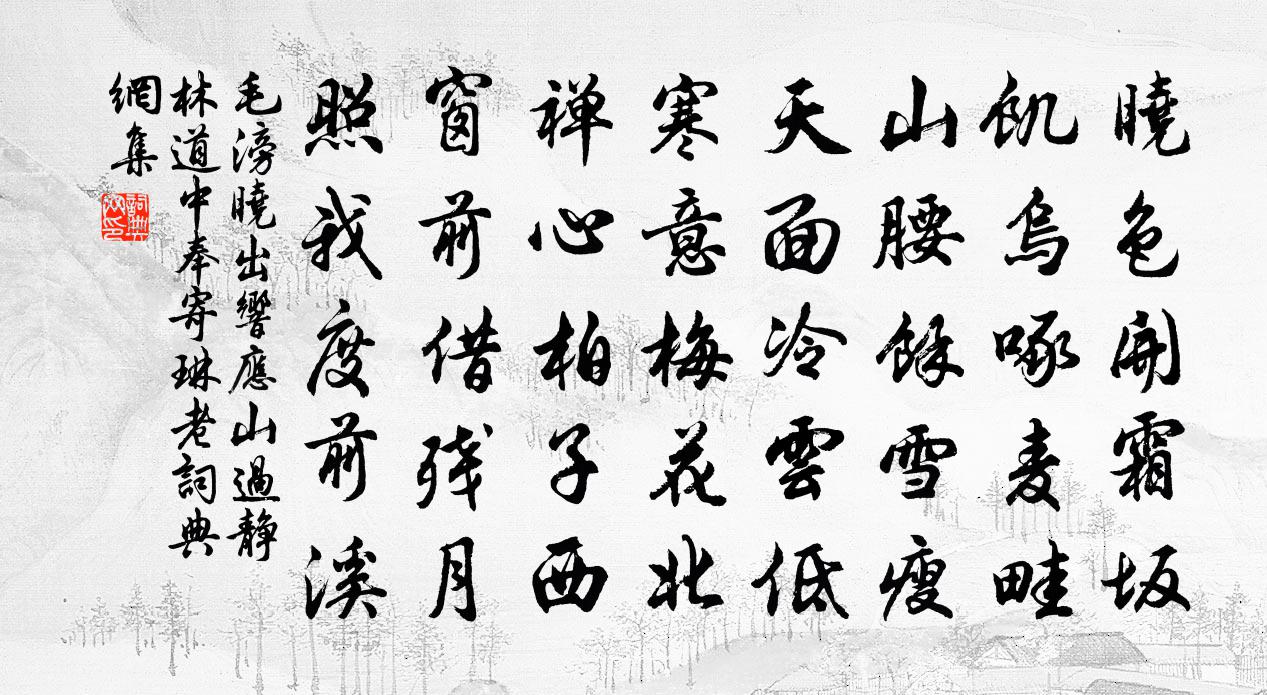 曉色開霜坂
飢烏啄麦畦
山腰餘雪瘦
天面冷雲低
寒意梅花北
禅心柏子西
窗前借残月
照我度前溪
毛滂曉出響應山過静
林道中奉寄琳老詞典
網集